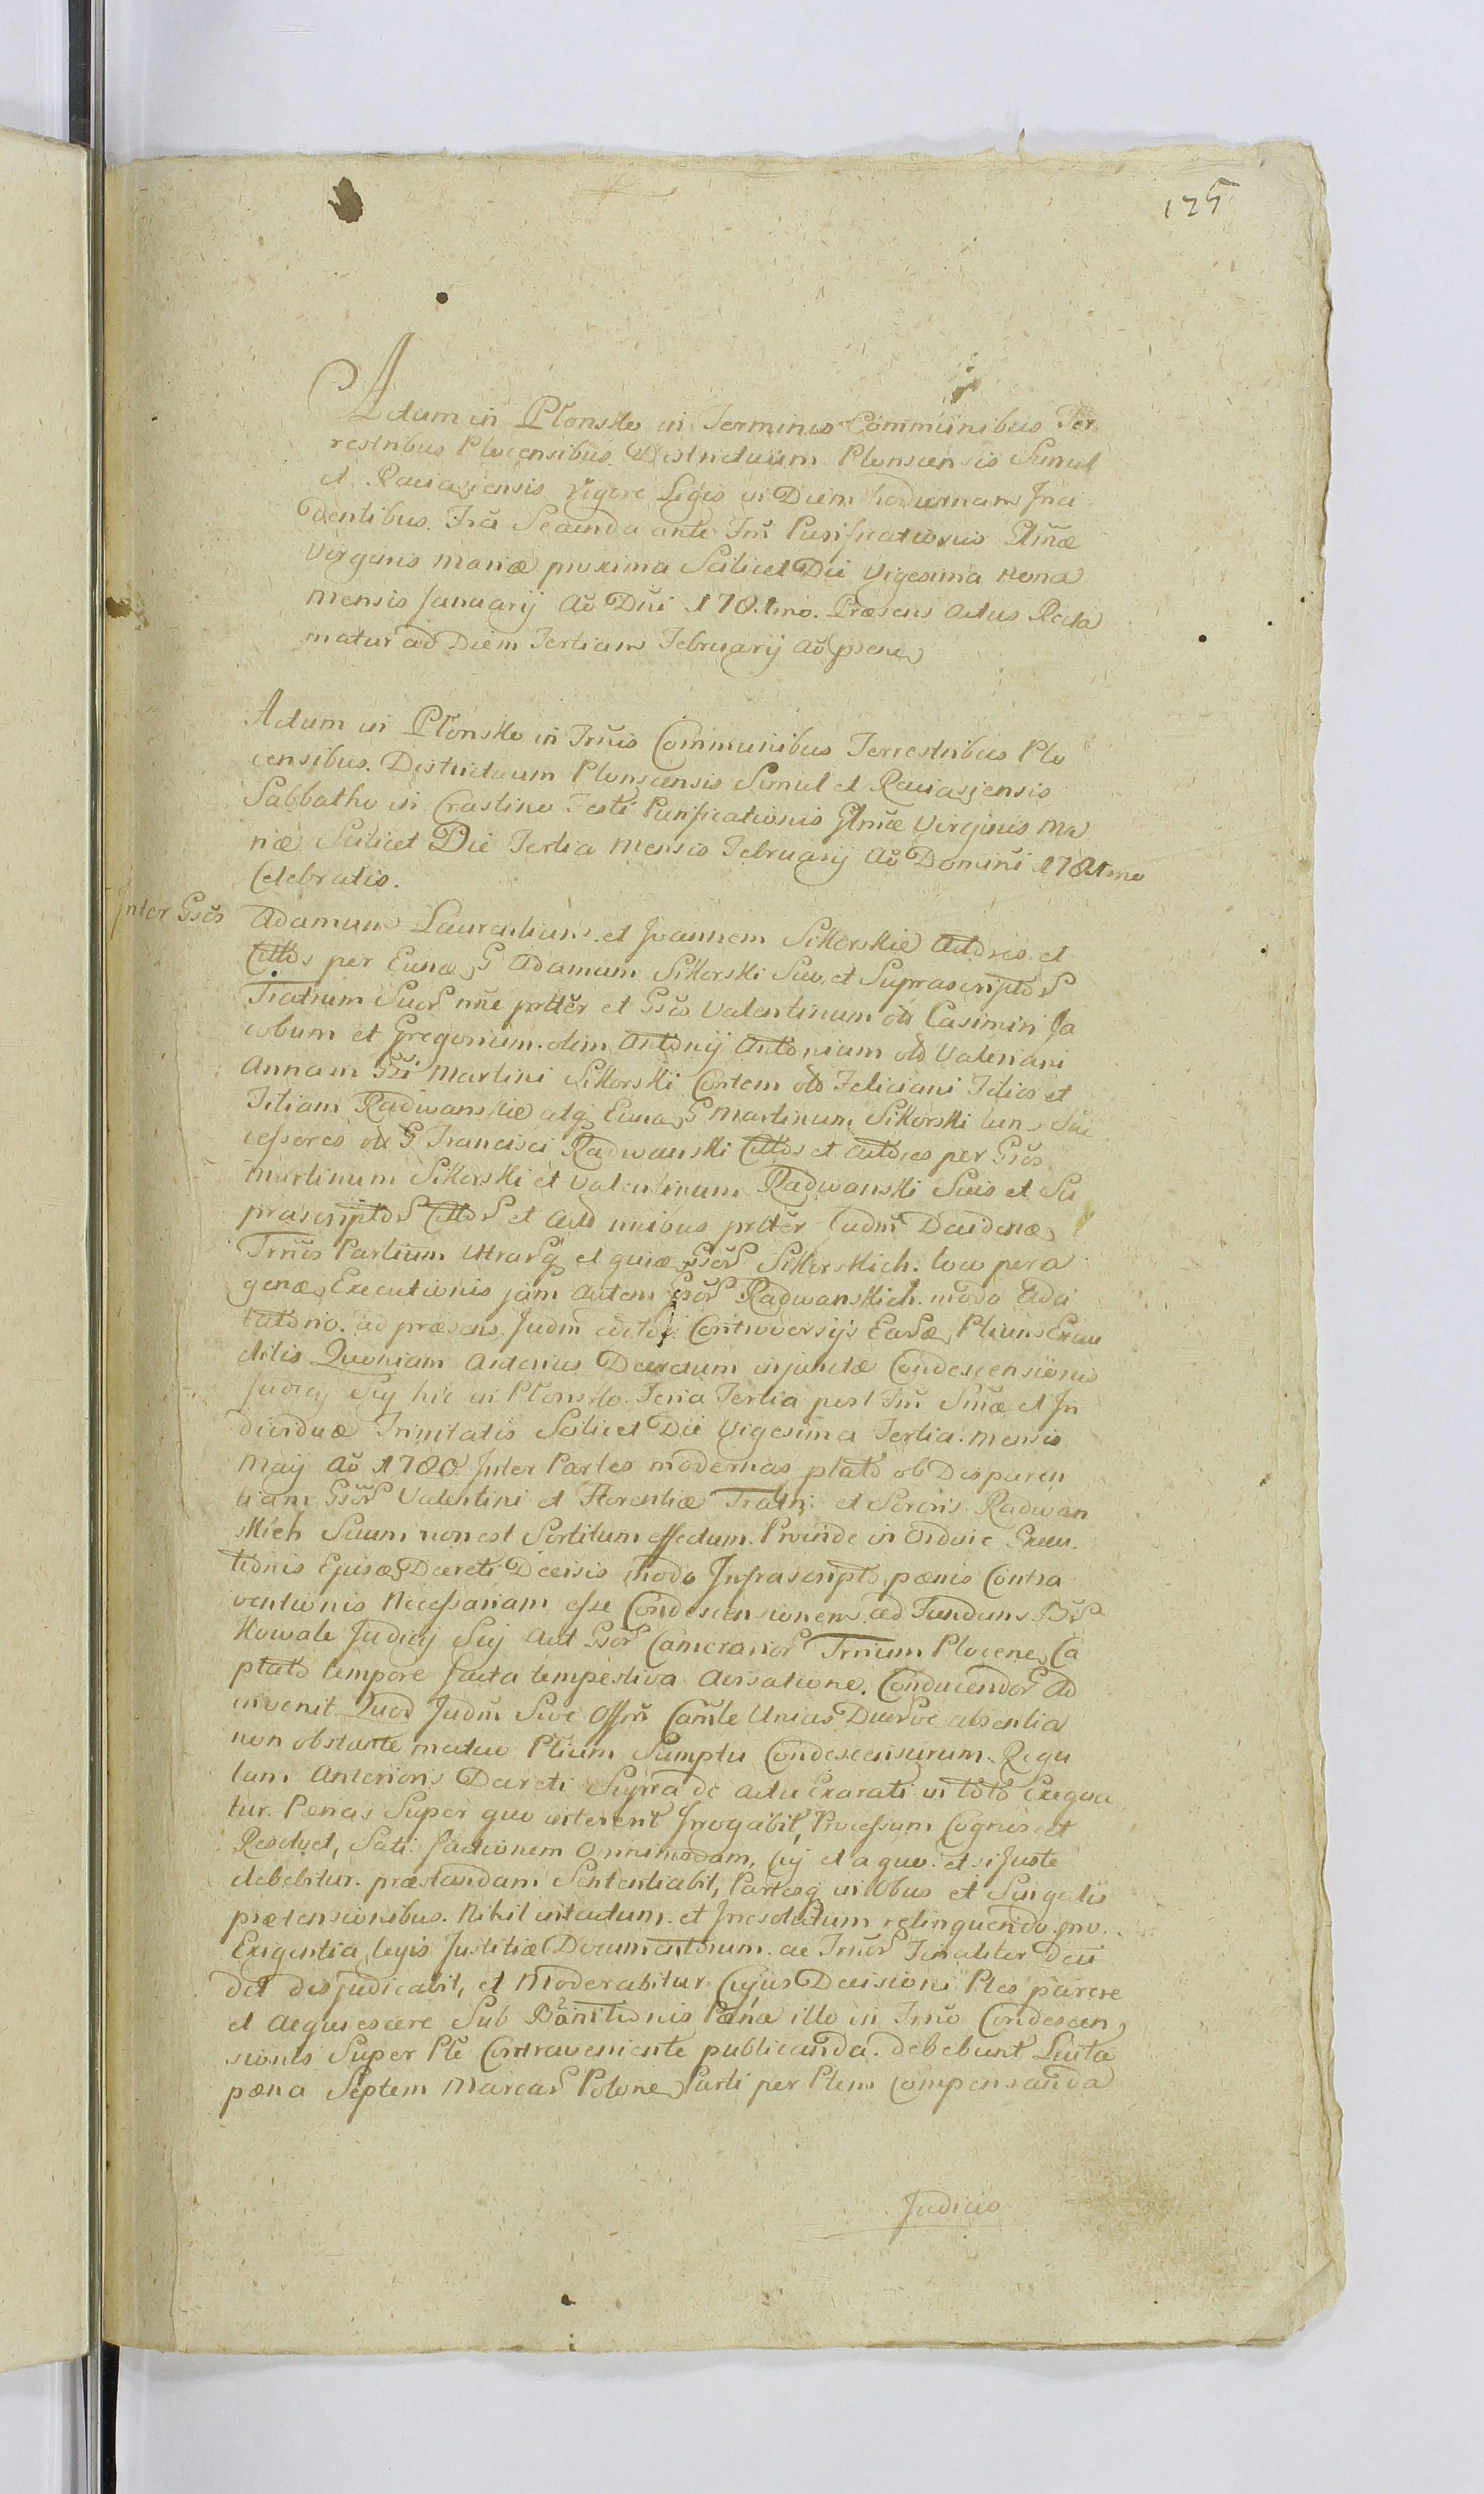 125
Actum in Płonsko in Terminis Communibus Ter
restribus Plocensibus. Districtuum Plonscensis Simul
et Raciazjensis vigore Legis in Diem hodiernam Inci
dentibus. Fria Secunda ante Fm̃ Purificationis Glm̃æ
Virginis Mariæ proxima Scilicet Die Vigesima Nona
Mensis Januarij Aõ Dñi 1781mo. Præsens Actus Recla
matur ad Diem Tertiam Februarij Aõ præsen
Actum in Płonsko in Trm̃is Communibus Terrestribus Plo
censibus. Districtuum Plonscensis Simul et Raciazjensis
Sabbatho in Crastino Festi Purificationis Glm̃æ Virginis Ma
riæ Scilicet Die Tertia Mensis Februarij Aõ Domini 1781mo
Celebratis.
Inter Gsõs Adamum Laurentium et Joannem Sikorskie Actores et
Citt̃os per Eund G Adamum Sikorski Suo et Suprascriptor
Fratrum Suor nñe prttẽr et Gsõs Valentinum olo Casimiri Ja
cobum et Gregorium olim Antonij Antonium olo Valeriani
Annam Gsi Martini Sikorski Contem olo Feliciani Filios et
Filiam Radwanskie atq Eund G Martinum Sikorski tum Suc
cessores olo G Francisci Radwanski Citt̃os et Actores per Gsõs
Martinum Sikorski et Valentinum Radwanski Suis et Su
prascriptor Cittor et Acto nnibus prttẽr Judm̃ Decidend
Trm̃is Partium Utrarq et quid Gsor Sikorskich. loco pera
gend Executionis jam Autem Gsor Radwanskich. modo Adci
tatorio. ad præsens Judm̃ editis Controversijs Eard Plium Exau
ditis Quoniam Anterius Decretum injunctæ Condescensionis
Judicij Sui hic in Płonsko. Feria Tertia post Fm̃ Sm̃æ et In
dividuæ Trinitatis Scilicet Die Vigesima Tertia. Mensis
Maij Aõ 1780 Inter Partes modernas plato ob Disparen
tiam Gsor Valentini et Florentiæ Fratri et Sororis Radwan
skich Suum non est Sortitum effectum. Proinde in Ordine Execu
tionis Ejusd Decreti Decisis modo Infrascripto pænis Contra
ventionis Necessariam esse Condescensionem ad Fundum Bor
Kowale Judicij Sui Aut Gsor Camerarior Trrium Plocens Ca
ptato tempore facta tempestiva Avisatione. Conducendor Ad
invenit Quod Judm̃ Sive Offm̃ Camle Unius Duorve absentia
non obstante mutuo Ptium Sumptu Condescensurum. Regu
lam Anterioris Decreti Supra de actu Exarati in toto Exequa
tur. Pænas Super quo intererit Irrogabit, Processum Cognoscet
Resolvet, Satisfactionem Omnimodam, Cuj et a quo et si juste
debebitur. præstandam Sententiabit, Partesq in Obus et Singulis
prætensionibus. Nihil intactum et Irresolutum relinquendo pro.
Exigentia legis Justitiæ Documentorum ac Trm̃or Finaliter deci
det disjudicabit, et Moderabitur. Cujus Decisioni Ptes parere
et Acquiescere Sub Bannitionis Pæna illo in Trm̃o Condescen
sionis Super Pte Contraveniente publicanda. debebunt Luita
pæna Septem Marcar Polone Parti per Ptem Compensanda
Judicio